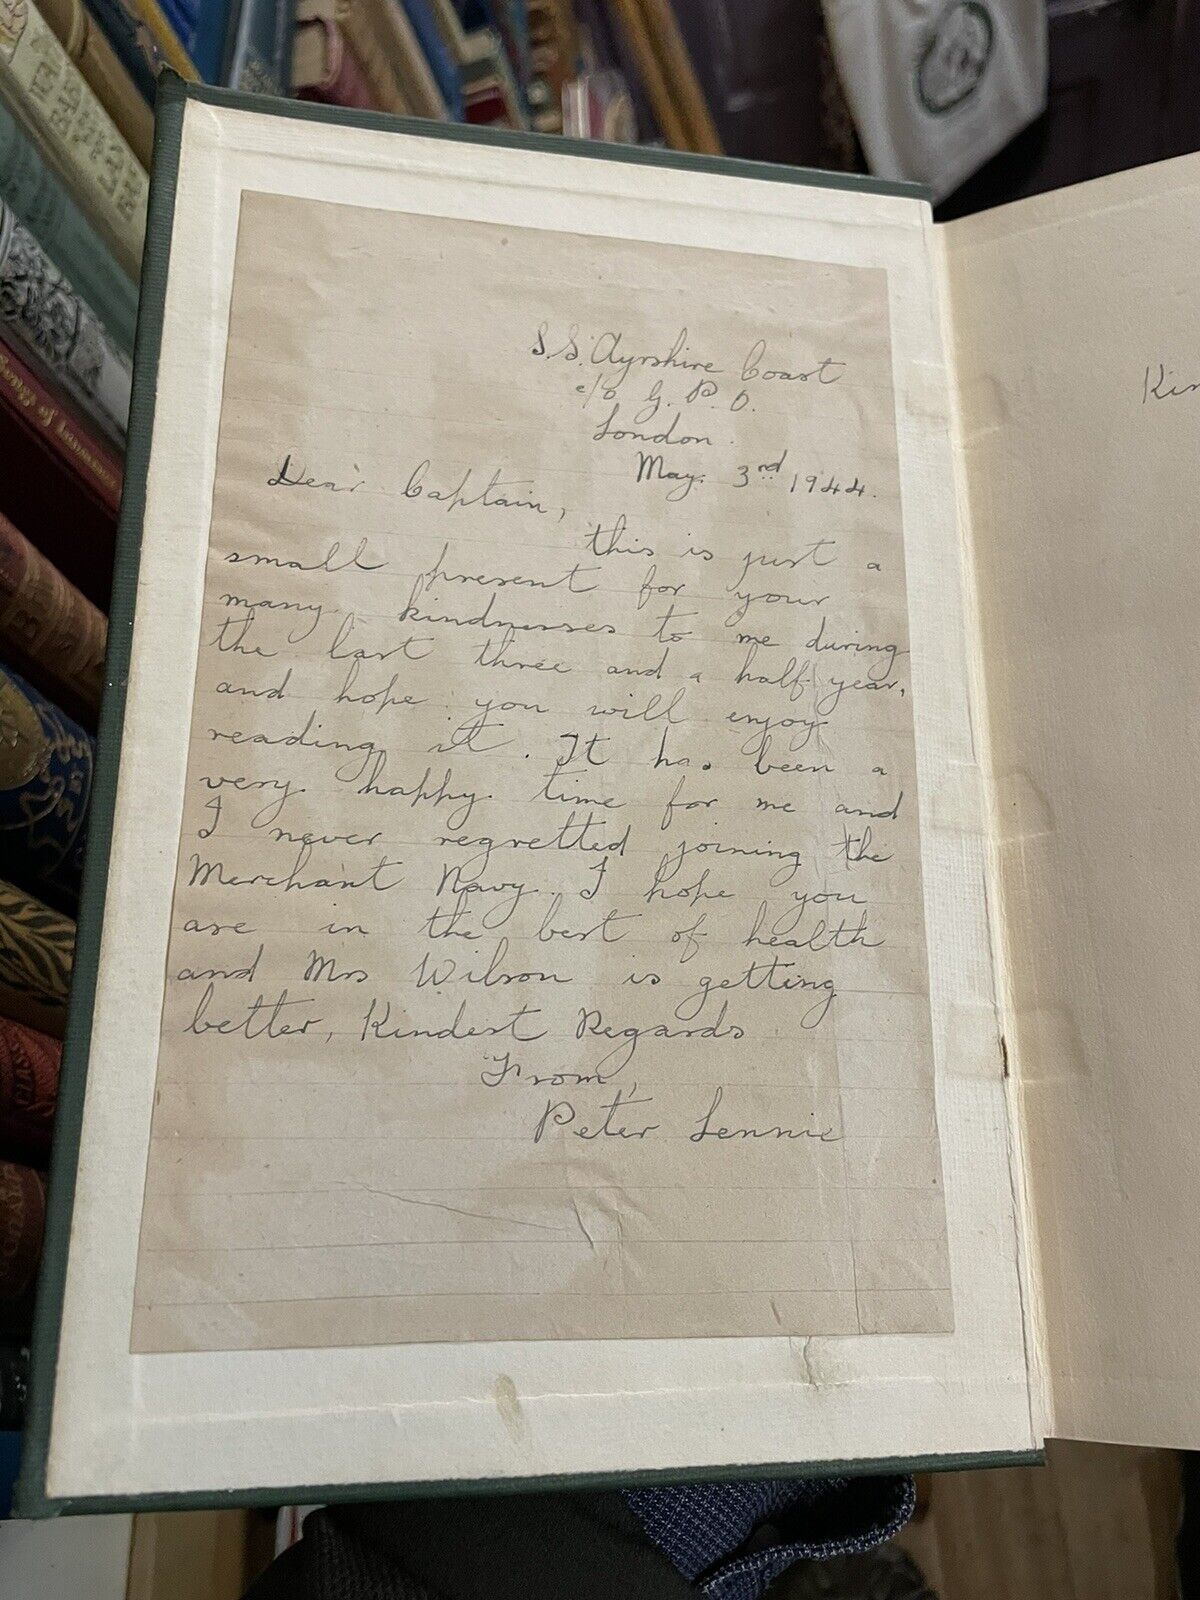 S.S. Ayrshire Coast
c/o G. P. O.
London.
May. 3rd 1944.
Dear Captain,
this is just a
small present for your
many kindnesses to me during
the last three and a half year,
and hope you will enjoy
reading it. It has been a
very happy time for me and
I never regretted joining the
Merchant Navy. I hope you
are in the best of health
and Mrs Wilson is getting
better, Kindest Regards
From,
Peter Lennie
Kin
Songs of